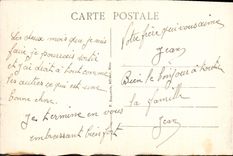 CARTE POSTALE
Les deux mois que je vais
faire je pourrais sortir
et j'ai droit à tout comme
les autres ce qui est une
bonne chose.
Je termine en vous
embrassant bien fort
Votre frère qui vous aime
Jean
Bien le bonjour à toute
la famille
Jean